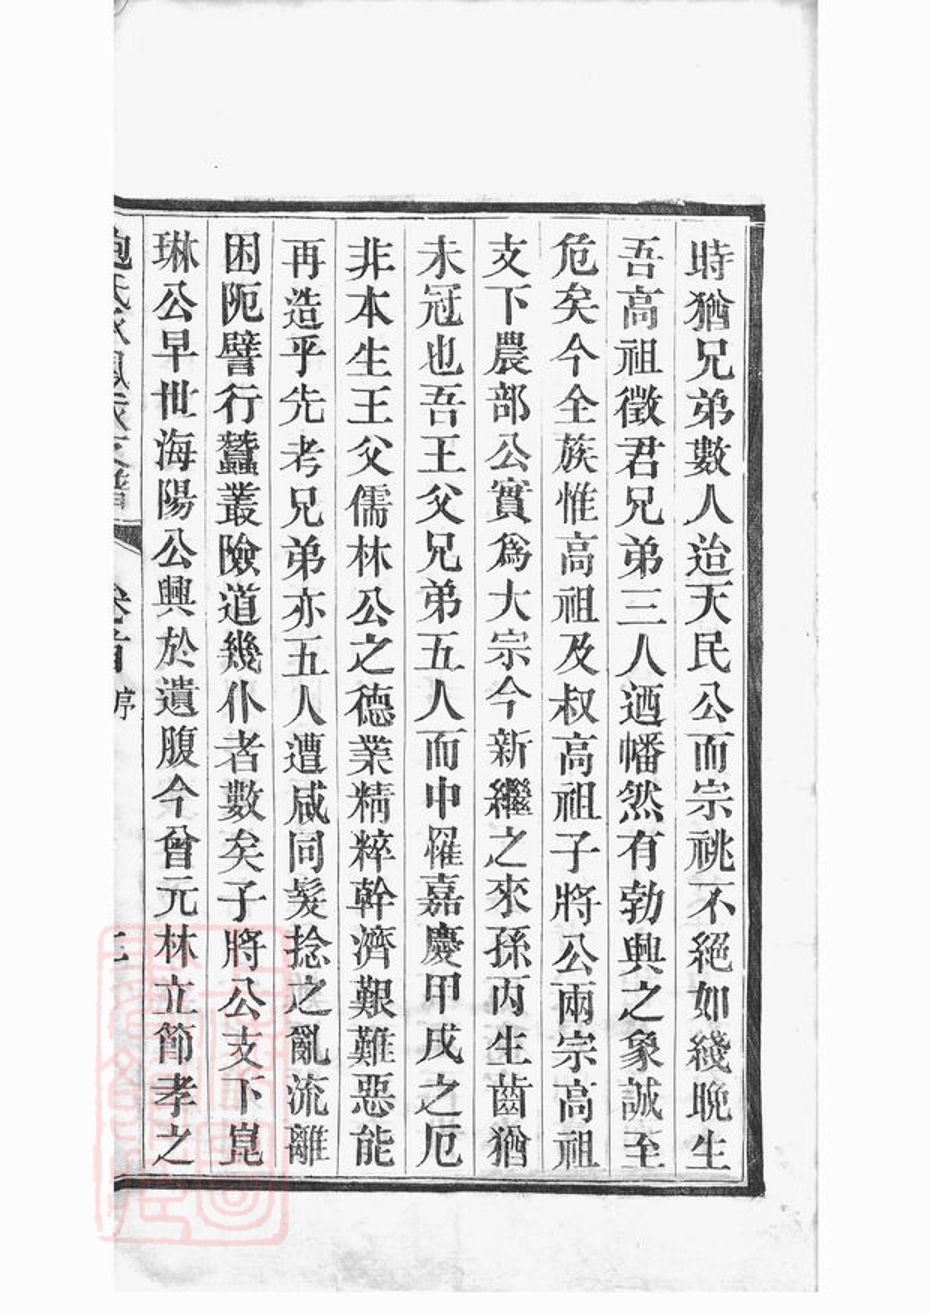 時猶兄弟數人迨天民公而宗祧不絕如綫晚生
吾高祖徵君兄弟三人迺幡然有勃興之象誠至
危矣今全族惟高祖及叔高祖子將公兩宗高祖
支下農部公實爲大宗今新繼之來孫丙生齒猶
未冠也吾王父兄弟五人而中罹嘉慶甲戌之厄
非本生王父儒林公之德業精粹幹濟艱難惡能
再造乎先考兄弟亦五人遭咸同髮捻之亂流離
困阨譬行蠶叢險道幾仆者數矣子將公支下崑
琳公早世海陽公興於遺腹今曾元林立節孝之
卷首 序